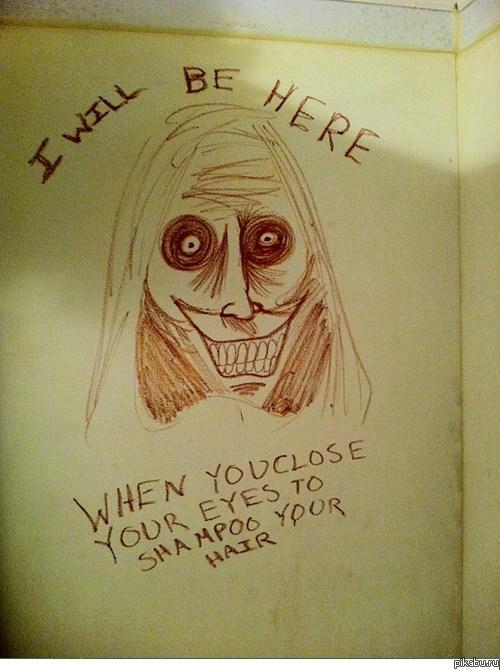 I WILL BE HERE
WHEN YOU CLOSE
YOUR EYES TO
SHAMPOO YOUR
HAIR
pikabu.ru